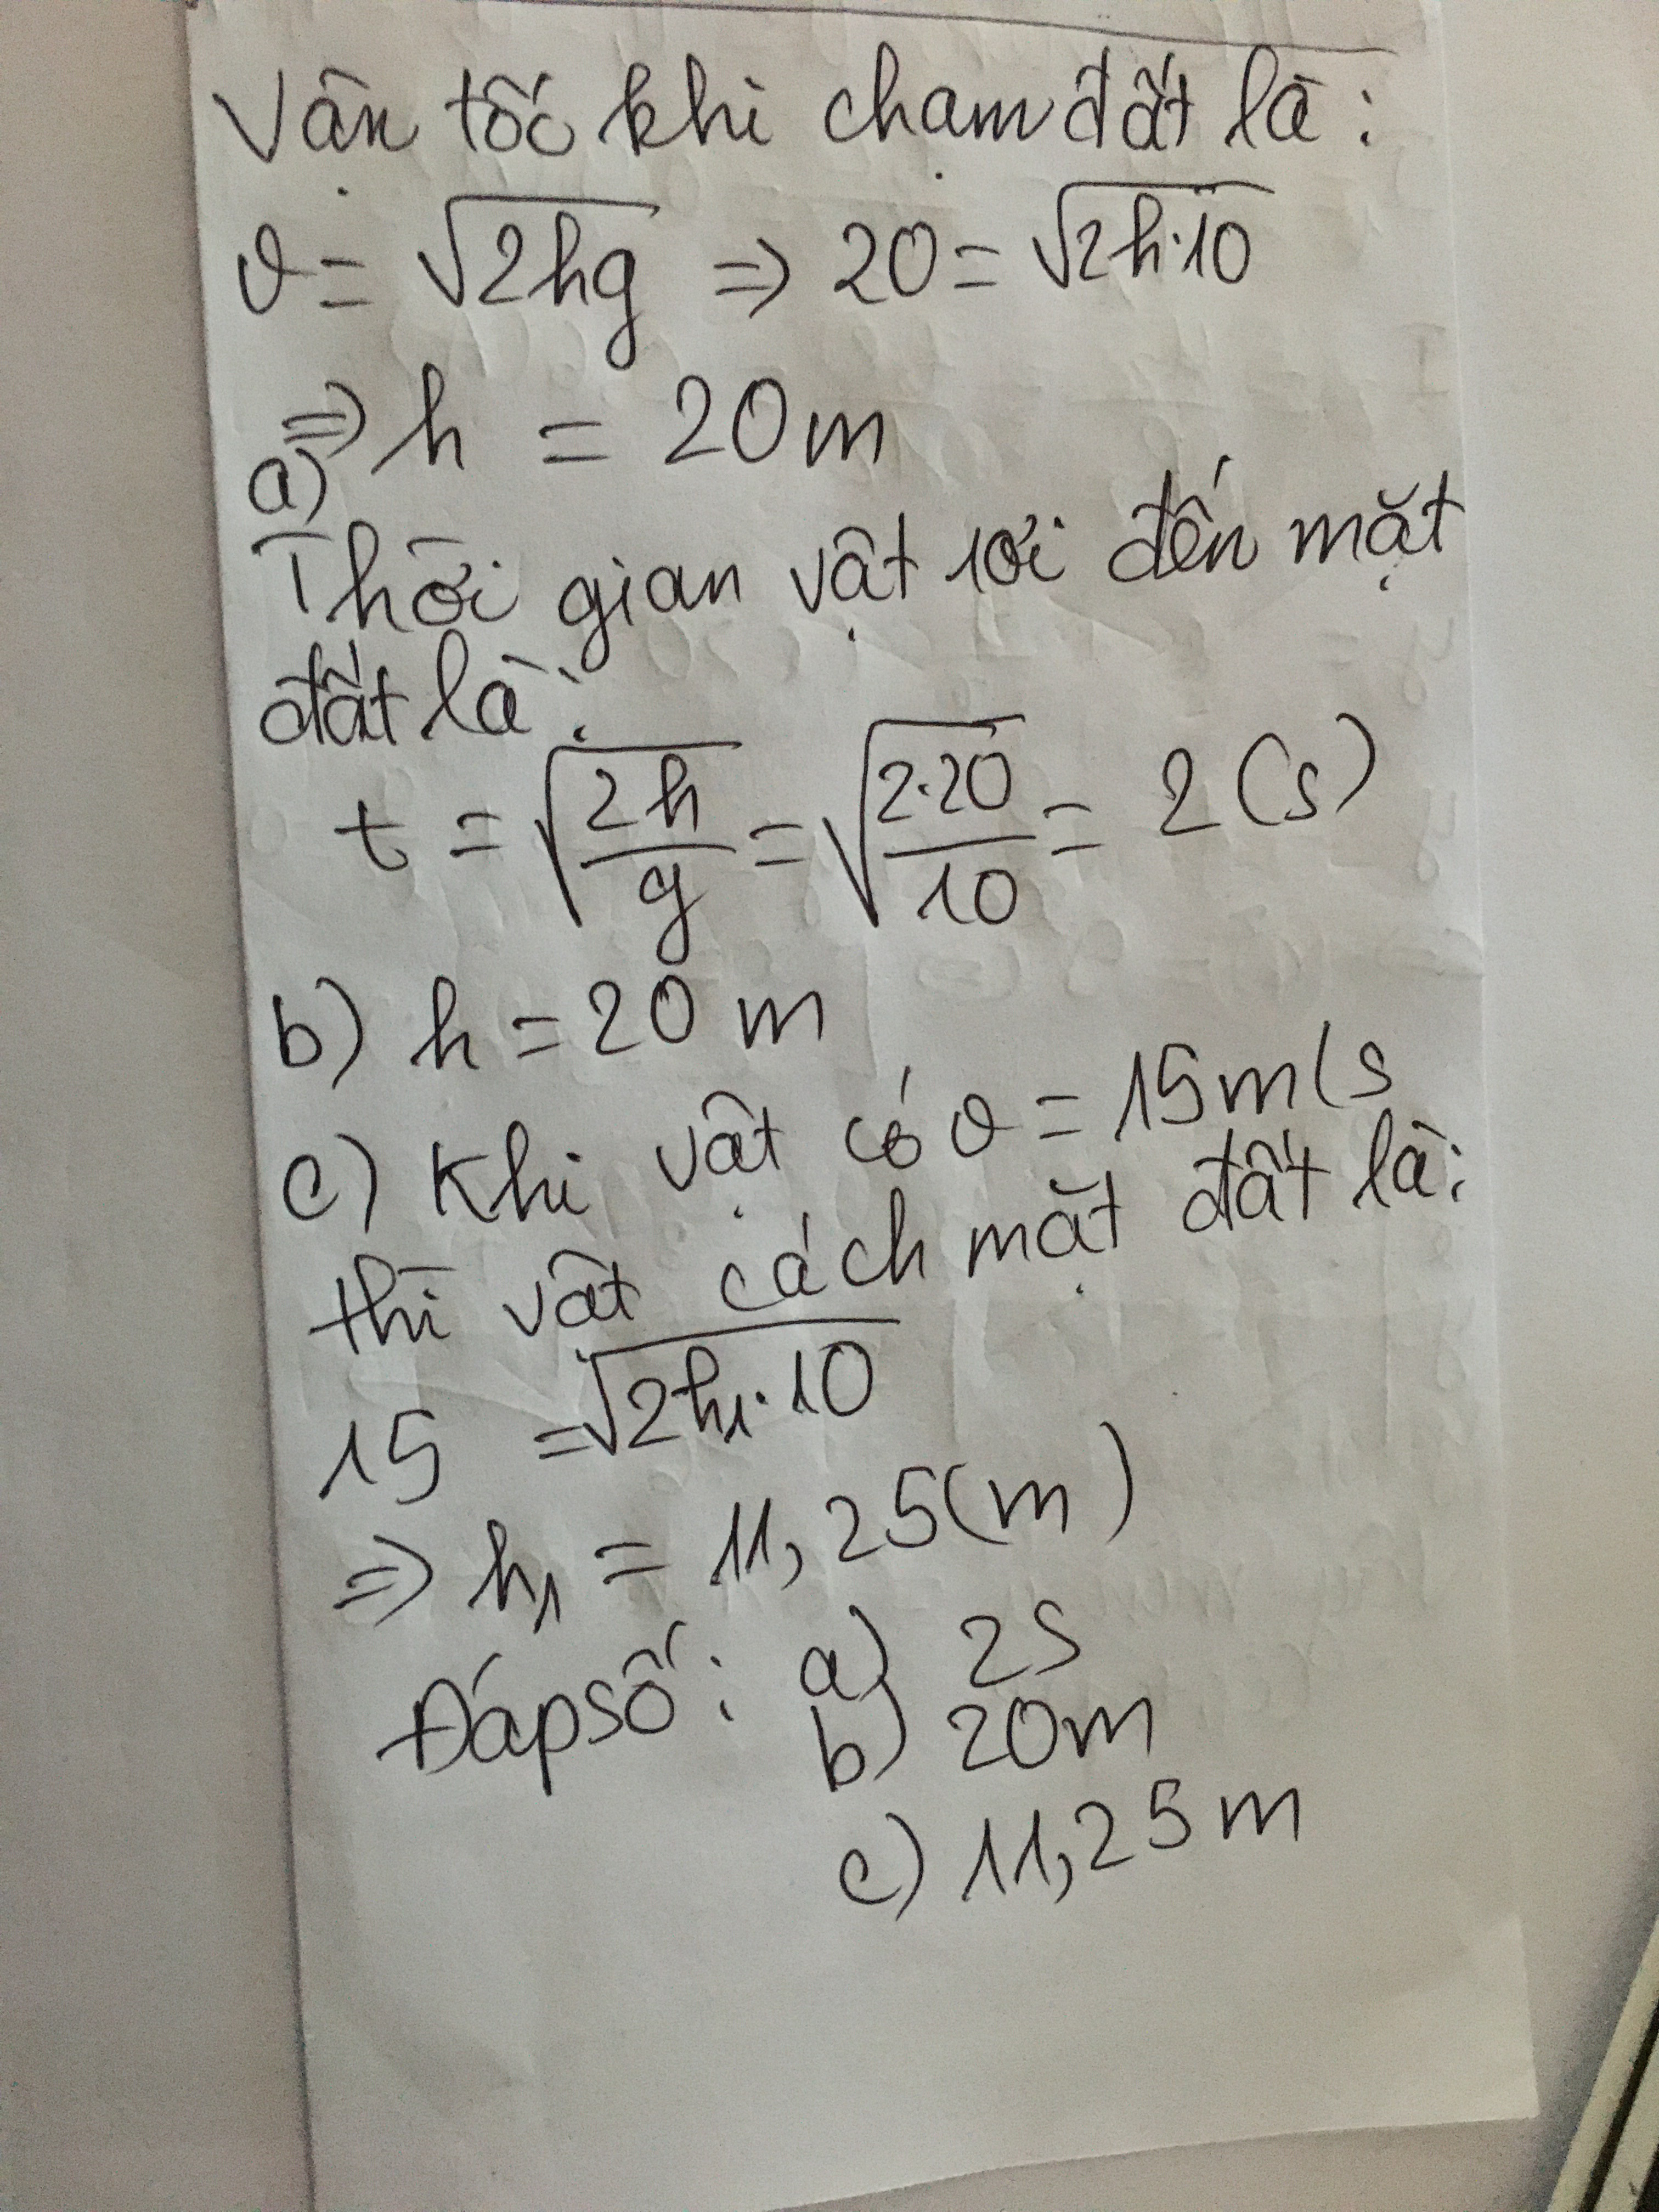 Vận tốc khi chạm đất là:
v = √2hg => 20 = √2h.10
=> h = 20m
a)
Thời gian vật rơi đến mặt
đất là:
t = √(2h/g) = √(2.20/10) = 2 (s)
b) h = 20 m
c) Khi vật có v = 15m/s
thì vật cách mặt đất là:
15 = √2h₁.10
=> h₁ = 11,25(m)
Đáp số: a) 2s
b) 20m
c) 11,25m